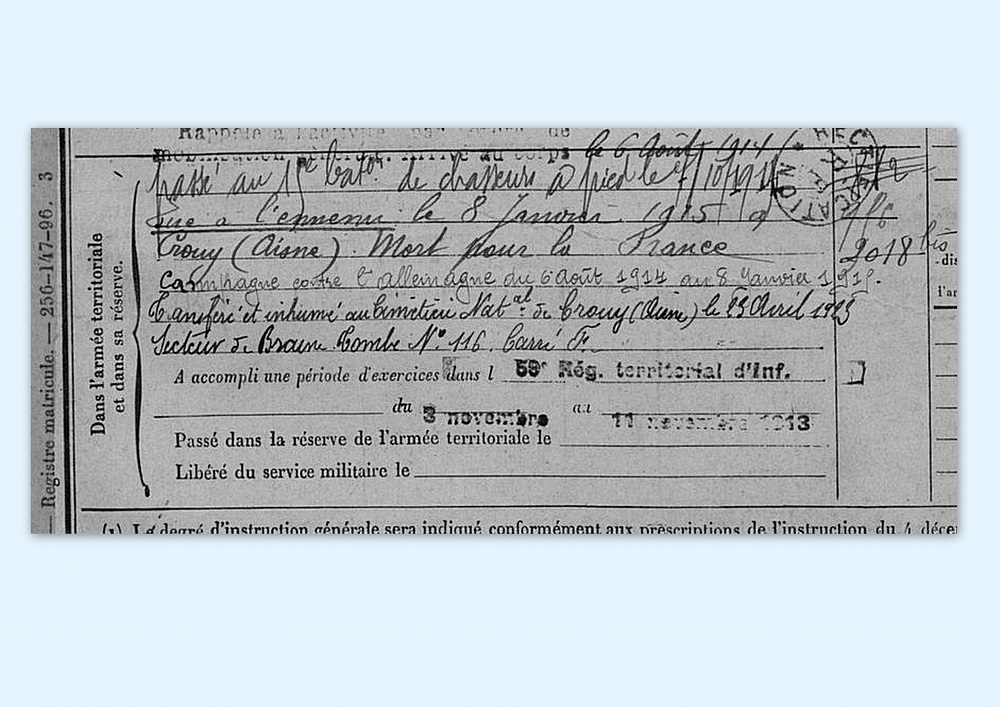 Rappelé à l'activité par ordre de
mobilisation générale. Arrivé au corps le 6 Août 1914
passé au 1 e bat.on de chasseurs à pied le 7/10/1914
tué à l'ennemi le 8 Janvier 1915 à
Crouy (Aisne). Mort pour la France
Campagne contre l'allemagne du 6 Août 1914 au 8 Janvier 1915.
Transféré et inhumé au Cimetière Nat.al de Crouy (Aisne) le 23 Avril 1925
Secteur de Braine Tombe N° 116 Carré F.
A accompli une période d'exercices dans l 59e Rég. territorial d'Inf.
du 3 novembre au 11 novembre 1913
Passé dans la réserve de l'armée territoriale le
Libéré du service militaire le
Dans l'armée territoriale
et dans sa réserve.
— Registre matricule. — 256-147-96. 3
2018 bis
(1) Le degré d'instruction générale sera indiqué conformément aux prescriptions de l'instruction du 4 déce